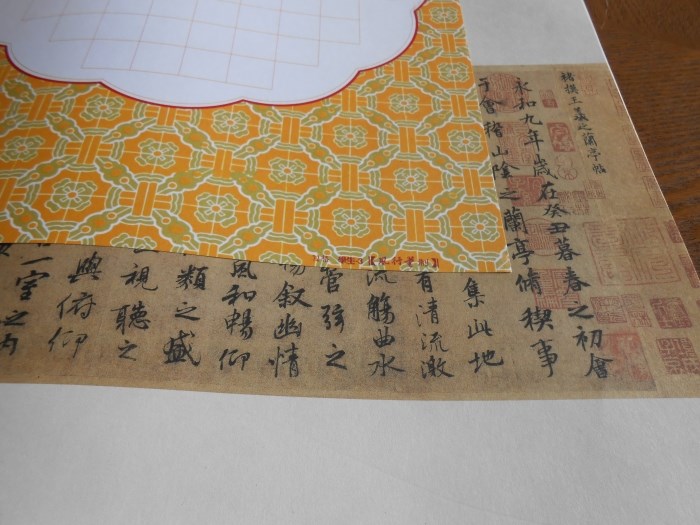 褚摸王羲之蘭亭帖
永和九年歲在癸丑暮春之初會
于會稽山陰之蘭亭脩稧事
集此地
有清流激
流觴曲水
管弦之
暢敘幽情
風和暢仰
類之盛
視聽之
與俯仰
一室之內